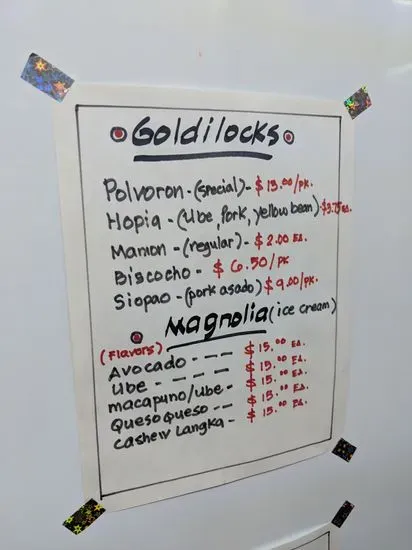 Goldilocks
Polvoron - (special) - $13.00/PK.
Hopia - (Ube, Pork, yellow bean) $3.75 ea.
Mamon - (regular) - $2.00 EA.
Biscocho - $6.50/PK
Siopao - (pork asado) $9.00/PK.
Magnolia (ice cream)
(Flavors)
Avocado - - - $15.00 EA.
Ube - - - - $15.00 EA.
macapuno/Ube - $15.00 EA.
Queso Queso - - - $15.00 EA.
Cashew Langka - $15.00 EA.